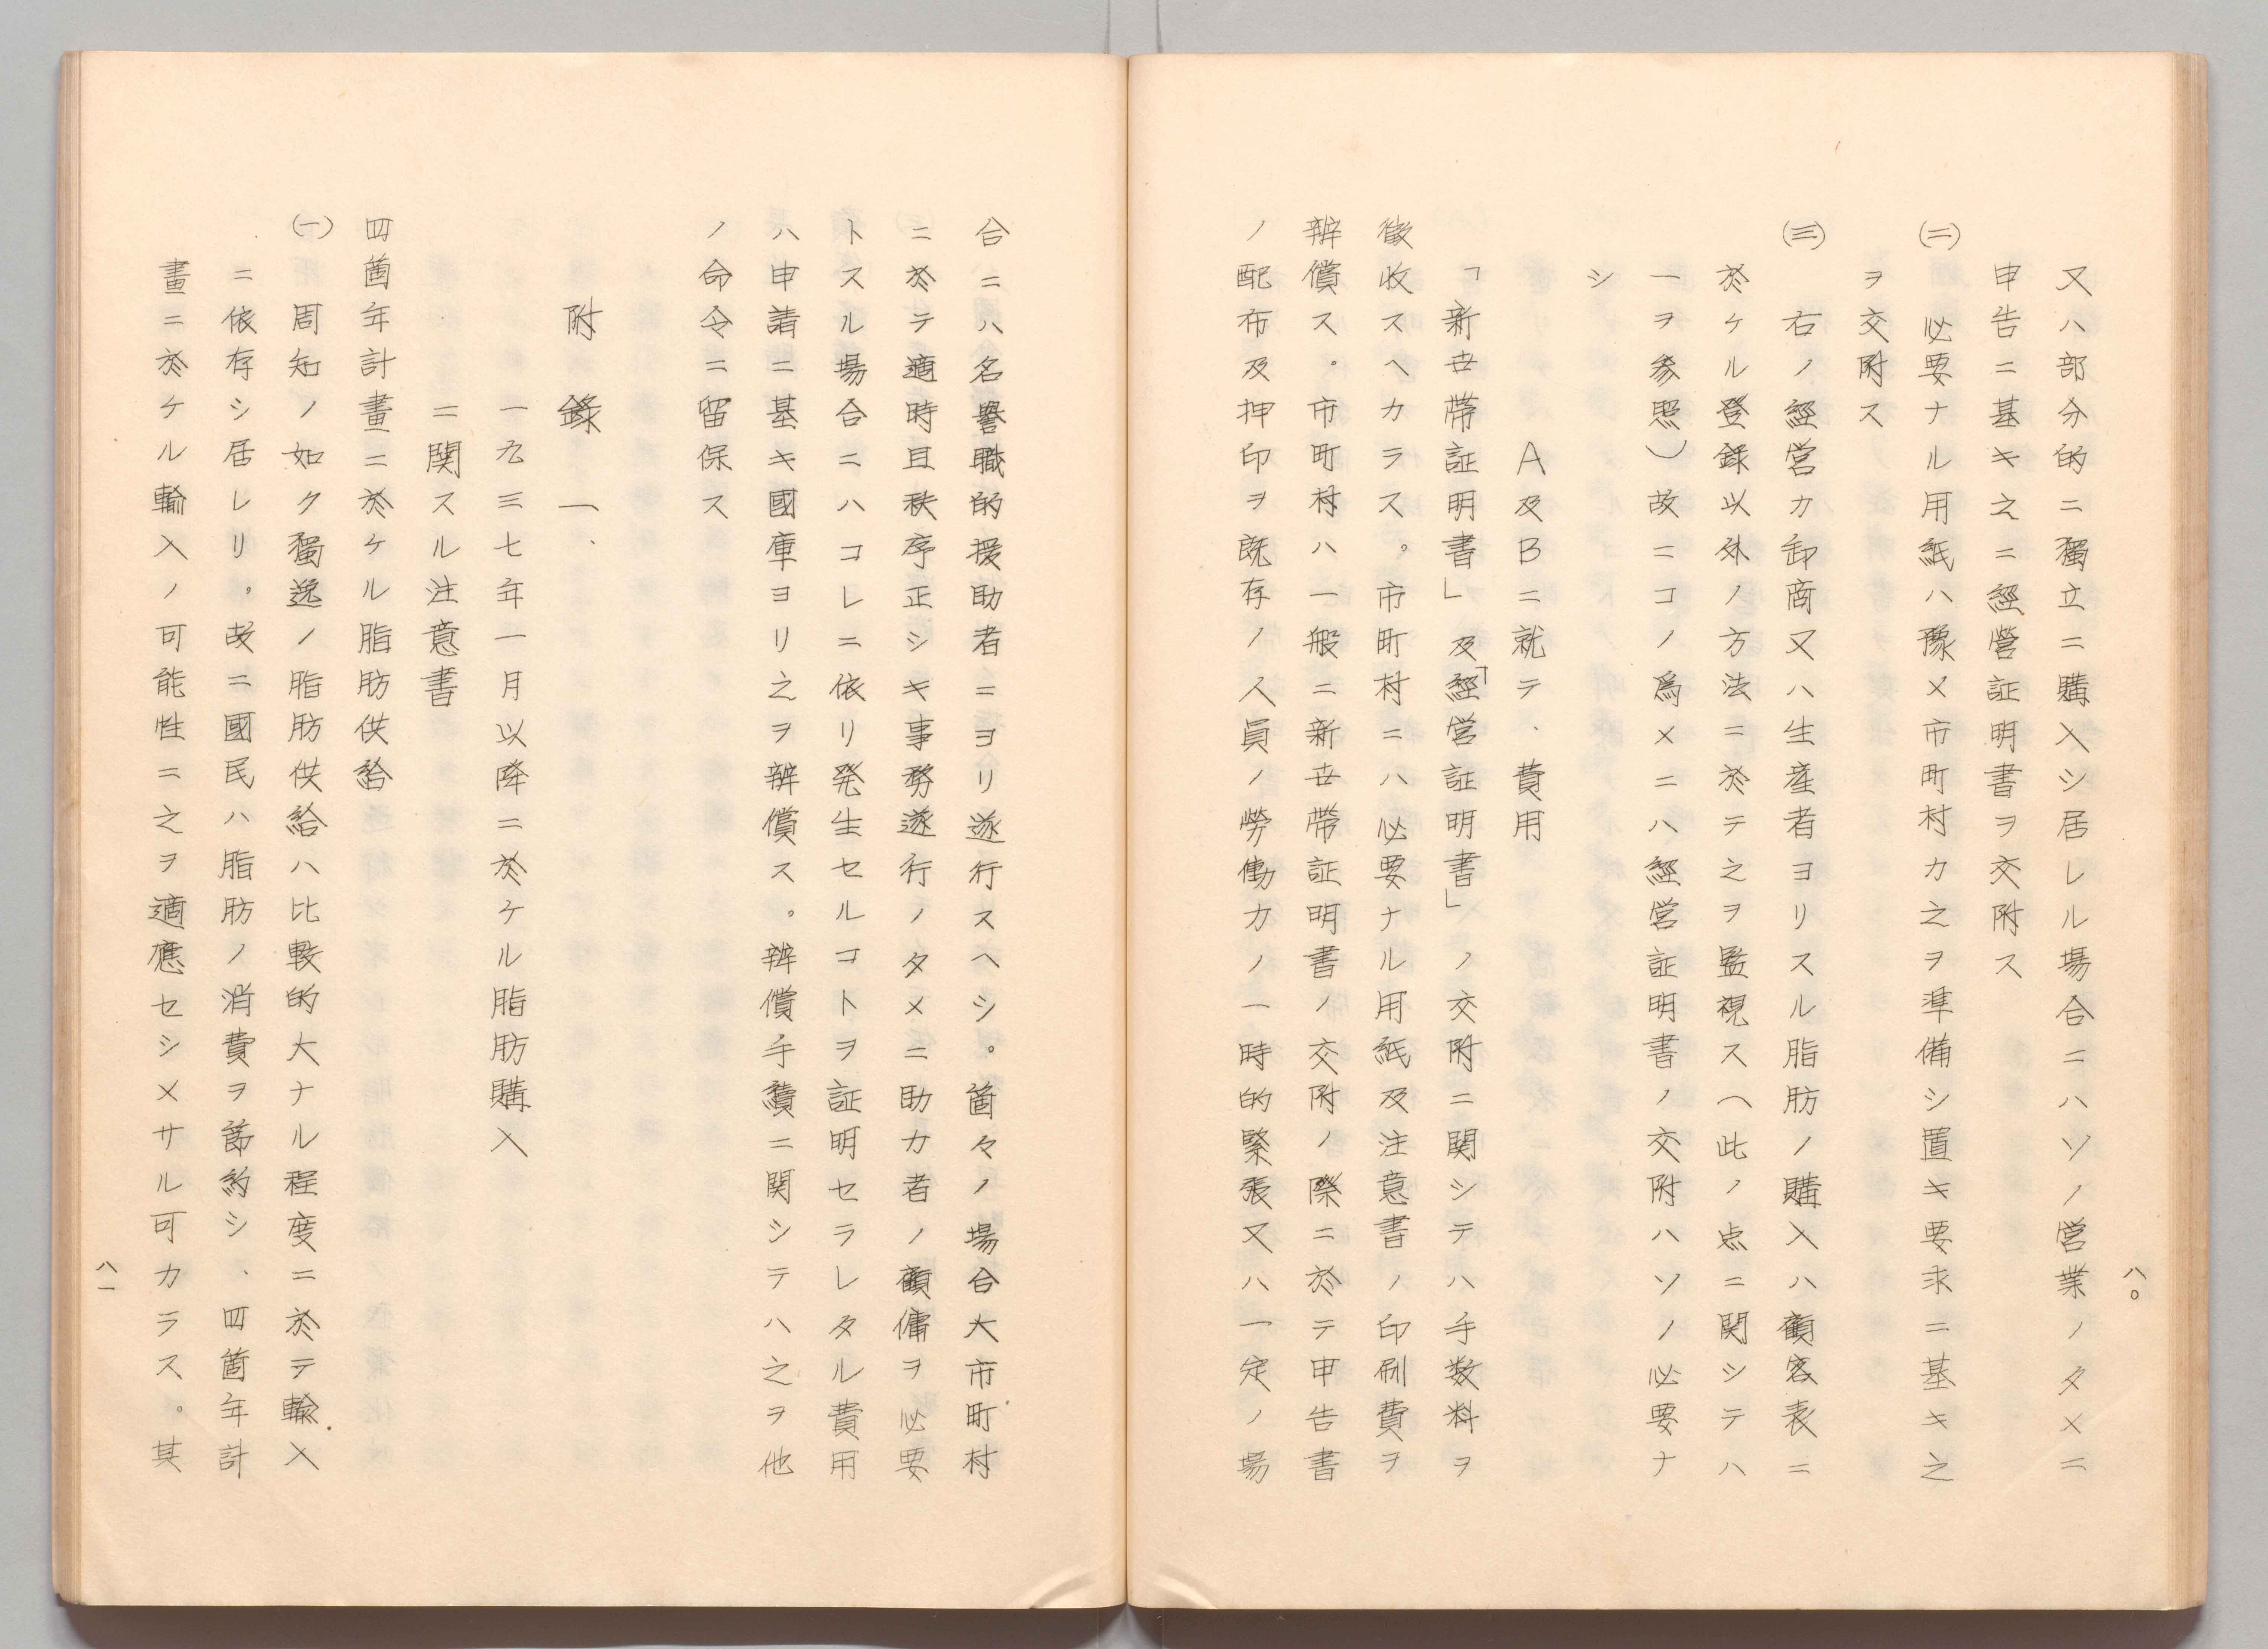 八〇
又ハ部分的ニ獨立ニ購入シ居レル場合ニハソノ営業ノタメニ
申告ニ基キ之ニ經營証明書ヲ交附ス
(二) 必要ナル用紙ハ豫メ市町村カ之ヲ準備シ置キ要求ニ基キ之
ヲ交附ス
(三) 右ノ經営カ卸商又ハ生産者ヨリスル脂肪ノ購入ハ顧客表ニ
於ケル登録以外ノ方法ニ於テ之ヲ監視ス(此ノ点ニ関シテハ
一ヲ参照)故ニコノ爲メニハ經営証明書ノ交附ハソノ必要ナ
シ
A及Bニ就テ、費用
「新世帯証明書」及「經営証明書」ノ交附ニ関シテハ手数料ヲ
徴收スヘカラス。市町村ニハ必要ナル用紙及注意書ノ印刷費ヲ
辨償ス。市町村ハ一般ニ新世帯証明書ノ交附ノ際ニ於テ申告書
ノ配布及押印ヲ既存ノ人員ノ勞働力ノ一時的緊張又ハ一定ノ場
合ニハ名譽職的援助者ニヨリ遂行スヘシ。箇々ノ場合大市町村
ニ於テ適時且秩序正シキ事務遂行ノタメニ助力者ノ顧傭ヲ必要
トスル場合ニハコレニ依リ発生セルコトヲ証明セラレタル費用
ハ申請ニ基キ國庫ヨリ之ヲ辨償ス。辨償手續ニ関シテハ之ヲ他
ノ命令ニ留保ス
附錄一、
一九三七年一月以降ニ於ケル脂肪購入
ニ関スル注意書
四箇年計畫ニ於ケル脂肪供給
(一) 周知ノ如ク獨逸ノ脂肪供給ハ比較的大ナル程度ニ於テ輸入
ニ依存シ居レリ。故ニ國民ハ脂肪ノ消費ヲ節約シ、四箇年計
畫ニ於ケル輸入ノ可能性ニ之ヲ適應セシメサル可カラス。其
八一